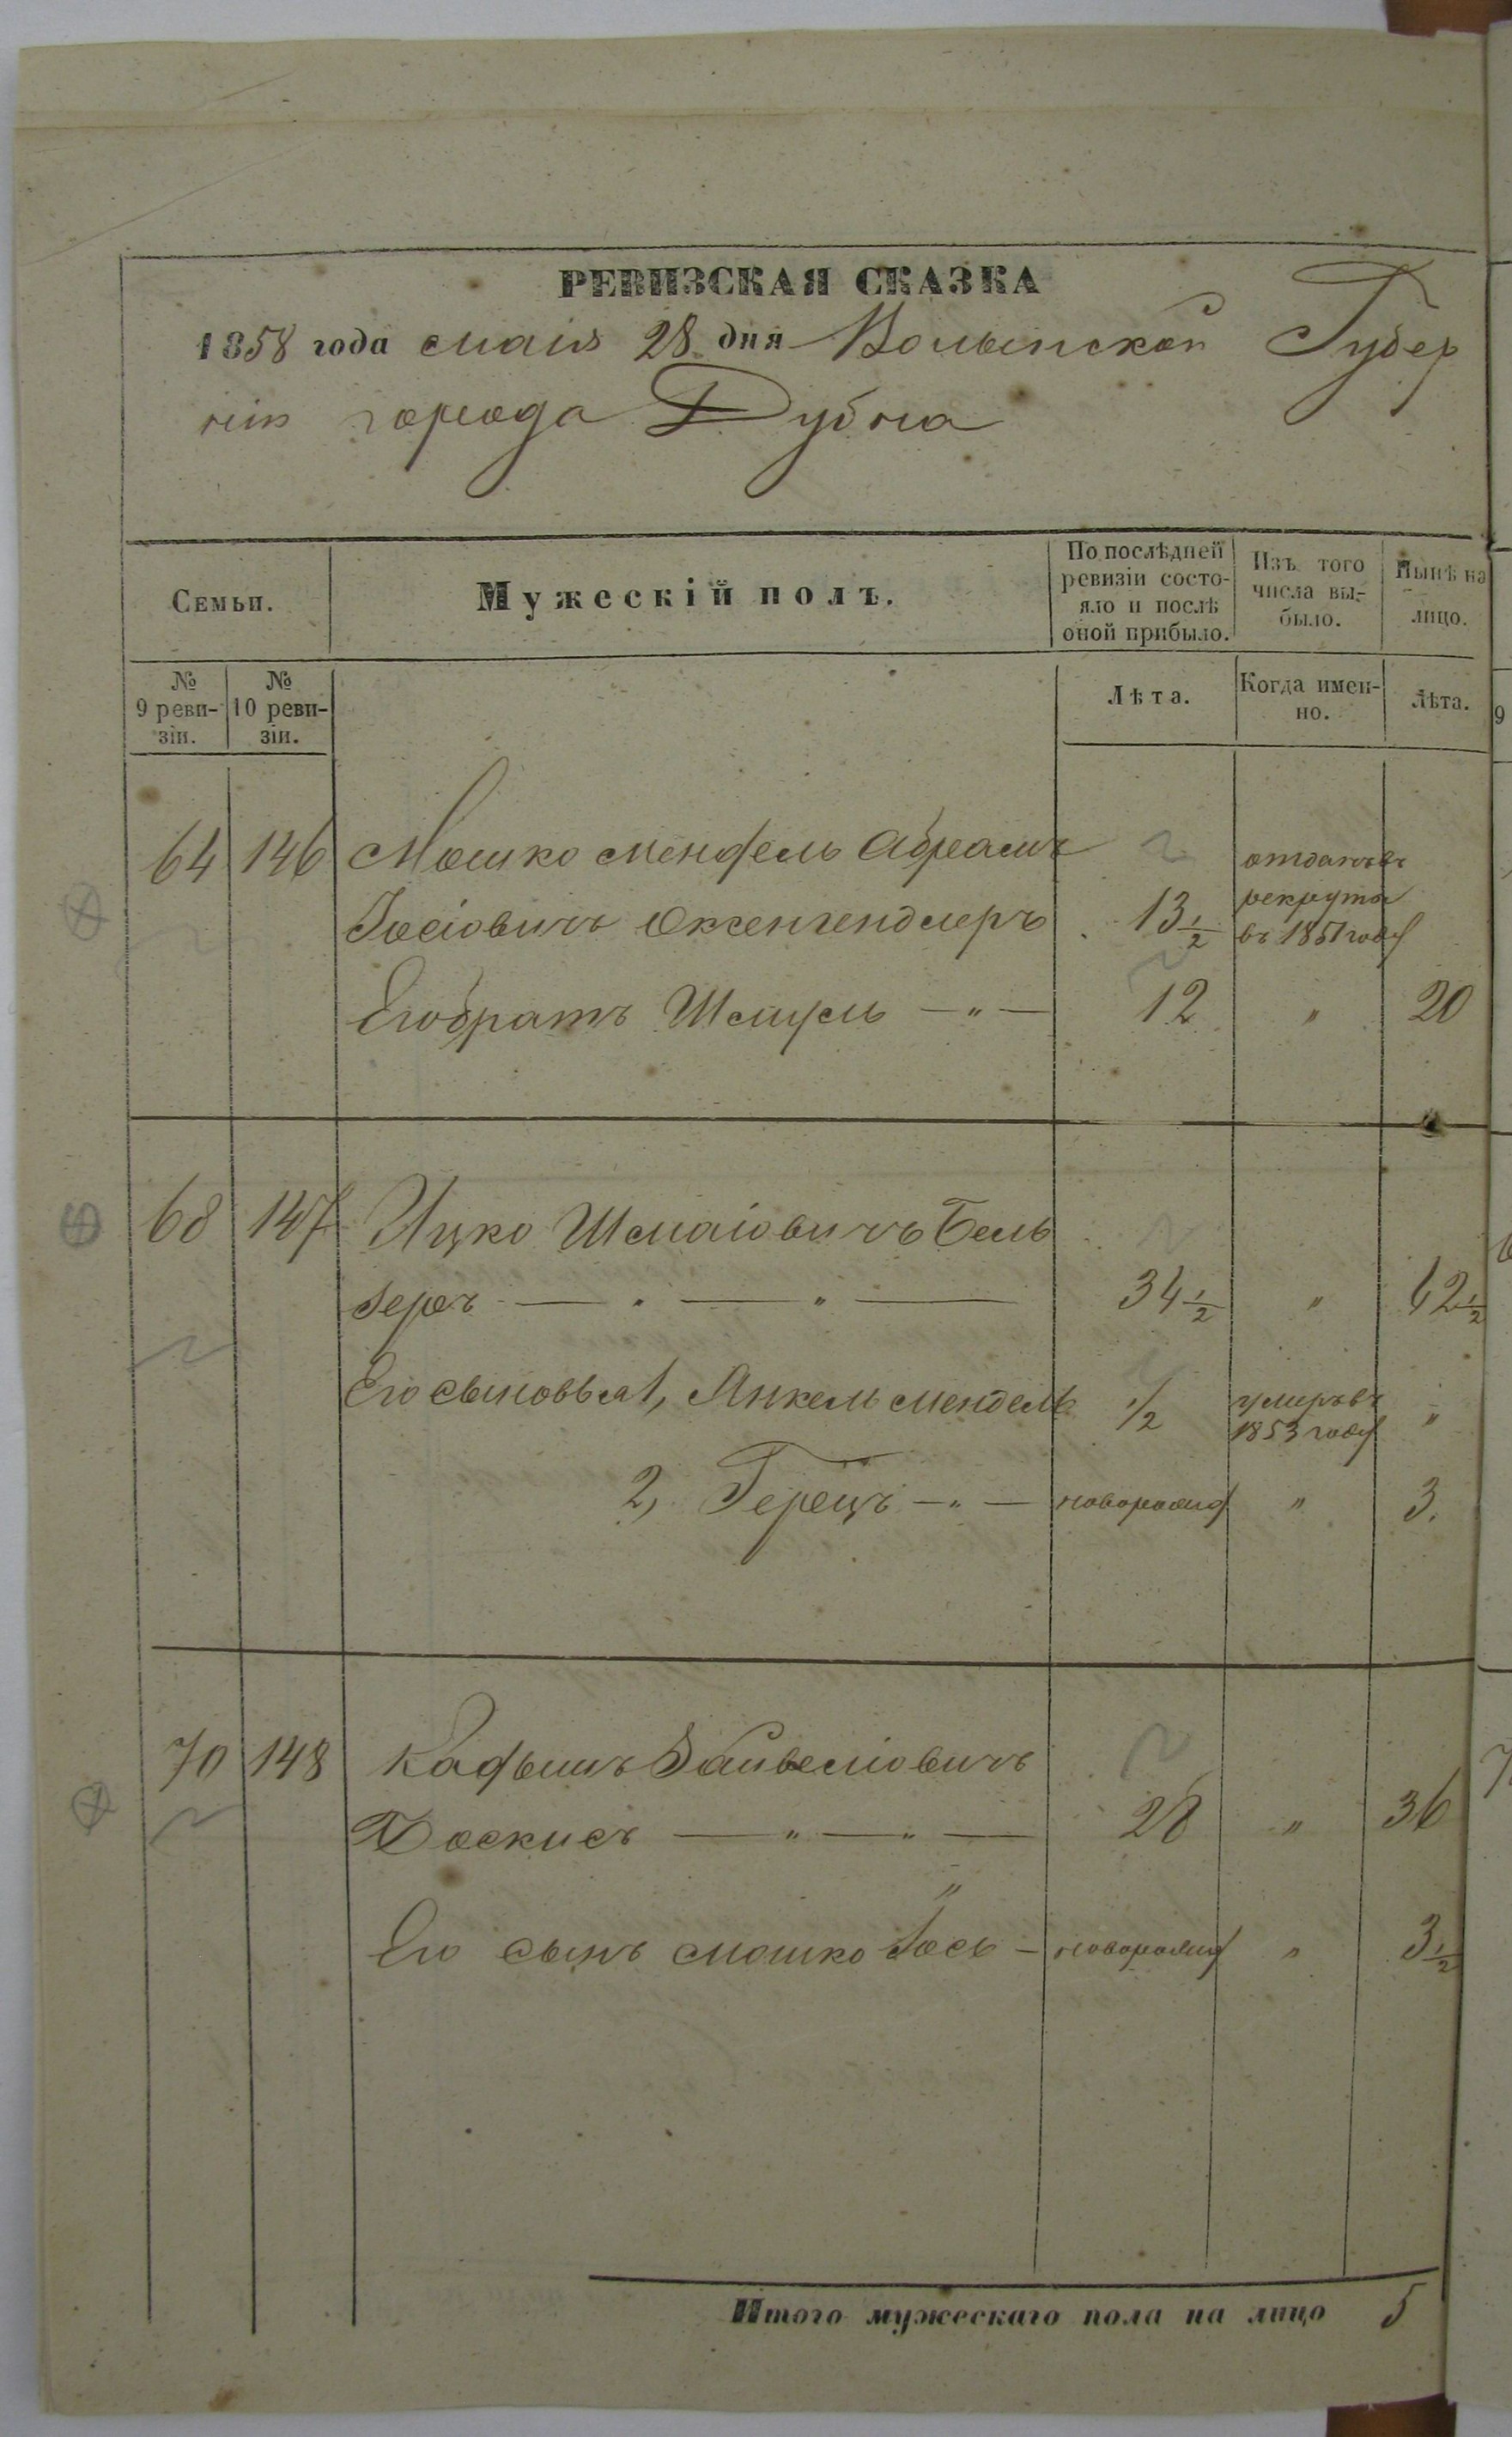 РЕВИЗСКАЯ СКАЗКА
1858 года маія 28 дня Волынской Губер
ніи города Дубна
Семьи.
Мужескій полъ.
По послѣдней ревизіи состо-
яло и послѣ оной прибыло.
Изъ того числа вы-
было.
Нынѣ на лицо.
№ 9 реви-
зіи.
№ 10 реви-
зіи.
Лѣта.
Когда имен-
но.
Лѣта.
64 146 Мошко Мендель Абрамъ
отданъ въ
рекруты
Іосіовичъ Оксенгендлеръ 13 1/2 въ 1851 году
Его братъ Шмуль —„— 12 „ 20
68 147 Ицко Шмаіовичъ Бель
геръ — „ — „ — 34 1/2 „ 42 1/2
Его сыновья 1, Янкель Мендель 1/2 умеръ въ
1853 году „
2, Герецъ —„— новорожд „ 3.
70 148 Кадышъ Зайвеліовичъ
Доскисъ — „ — „ — 28 „ 36
Его сынъ Мошко Іось — новорожд „ 3 1/2
Итого мужескаго пола на лицо 5